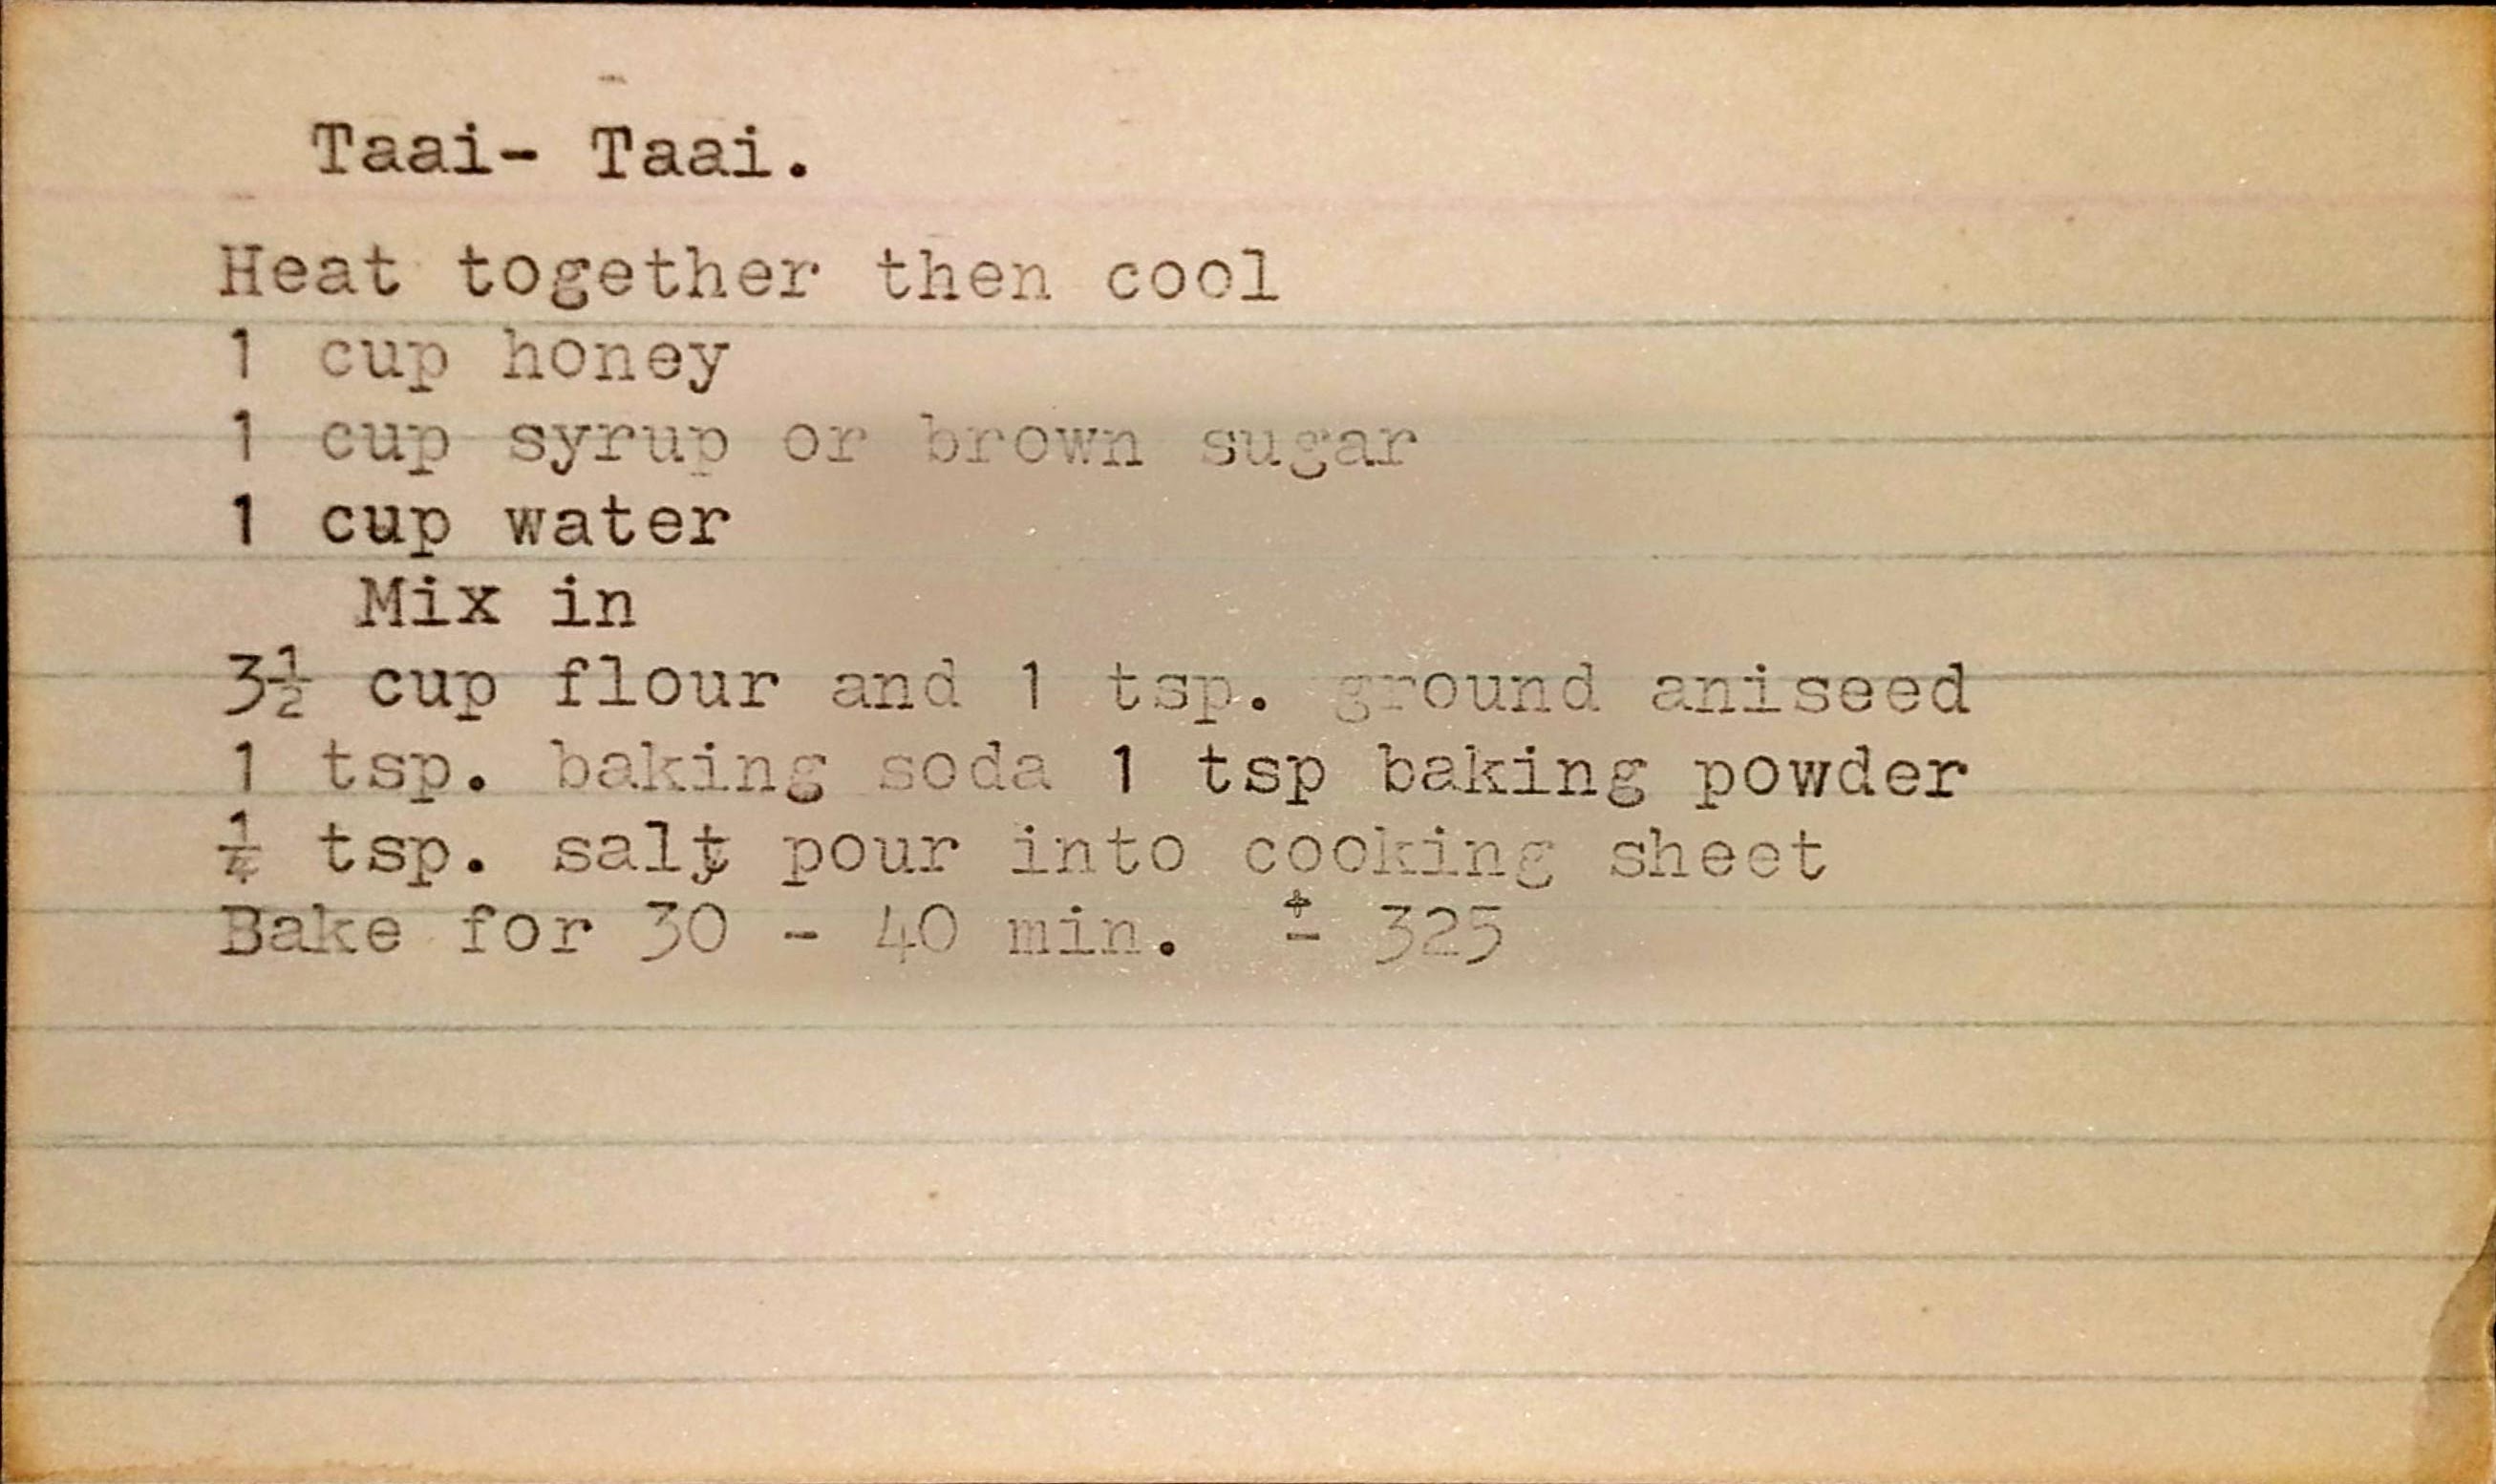 Taai- Taai.
Heat together then cool
1 cup honey
1 cup syrup or brown sugar
1 cup water
Mix in
3½ cup flour and 1 tsp. ground aniseed
1 tsp. baking soda 1 tsp baking powder
¼ tsp. salt pour into cooking sheet
Bake for 30 - 40 min. ± 325